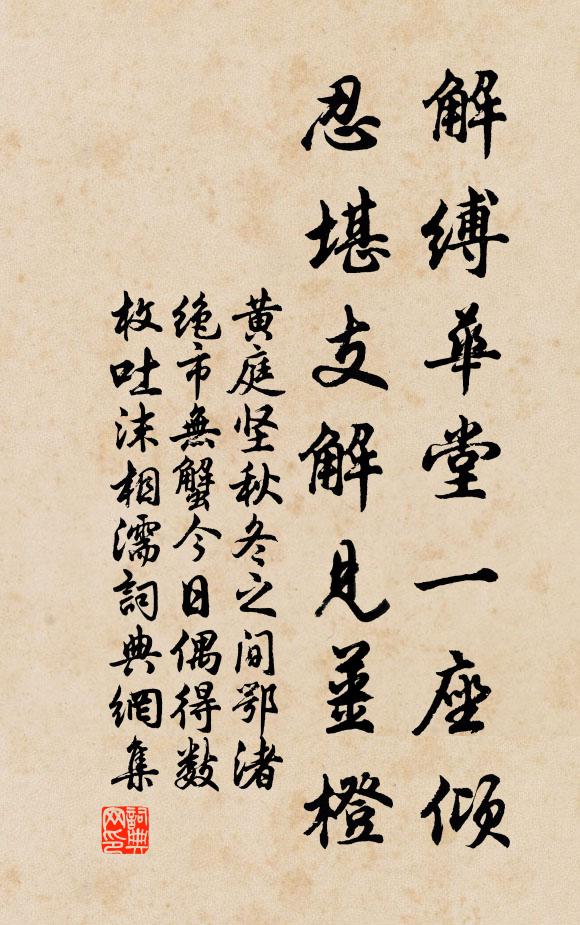 解縛華堂一座傾
忍堪支解見薑橙
黄庭坚秋冬之间鄂渚
绝市無蟹今日偶得数
枚吐沫相濡詞典網集
詞典网印